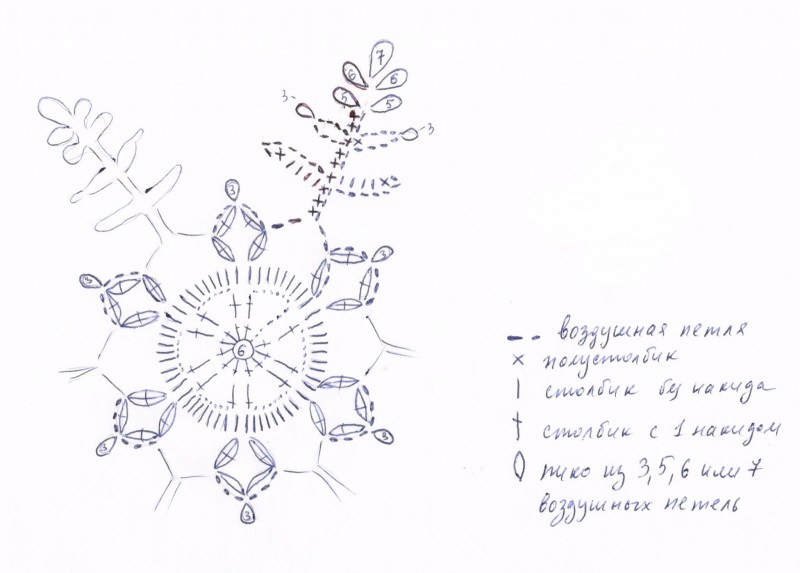 7
6
6
5
5
3-
-3
3
3
3
6
3
3
3
воздушная петля
полустолбик
столбик б/накида
столбик с 1 накидом
пико из 3, 5, 6 или 7
воздушных петель